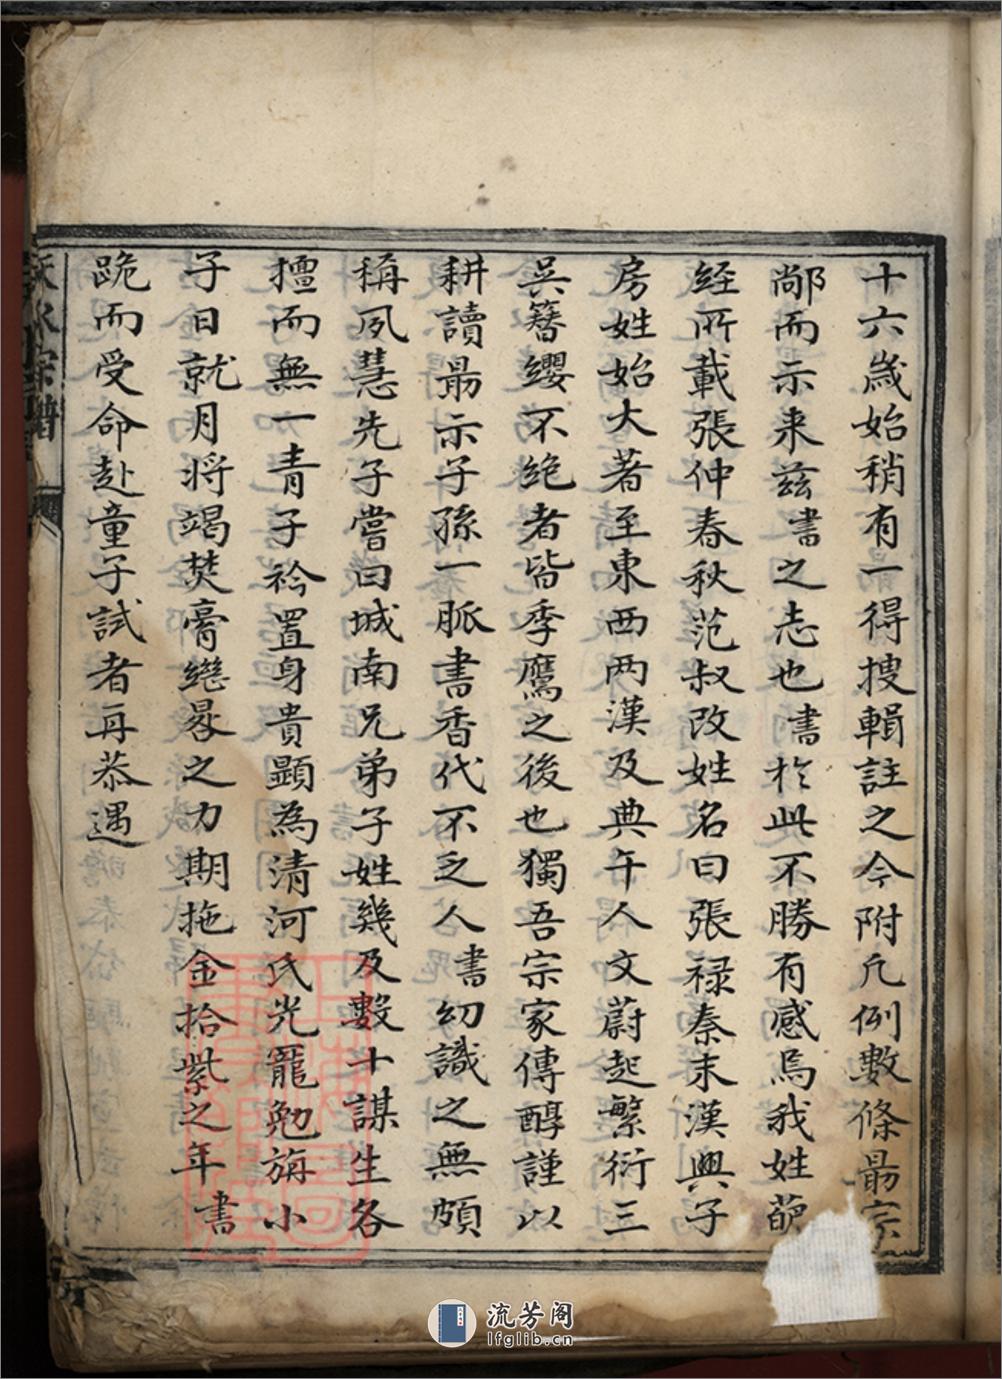 十六歲始稍有一得搜輯註之今附凡例數條最宗
鄙而示来兹書之志也書於此不勝有感焉我姓葩
経所載張仲春秋范叔改姓名曰張禄秦末漢興子
房姓始大著至東西两漢及典午人文蔚起繁衍三
吳簪纓不绝者皆季鷹之後也獨吾宗家傳醇謹以
耕讀最示子孫一脈書香代不乏人書幼識之無頗
稱夙慧先子嘗曰城南兄弟子姓幾及數十謀生各
擅而無一青子衿置身貴顯為清河氏光寵勉旃小
子日就月将竭焚膏繼晷之力期拖金拾紫之年書
跪而受命赴童子試者再恭遇
宗譜
流芳阁
lfglib.cn